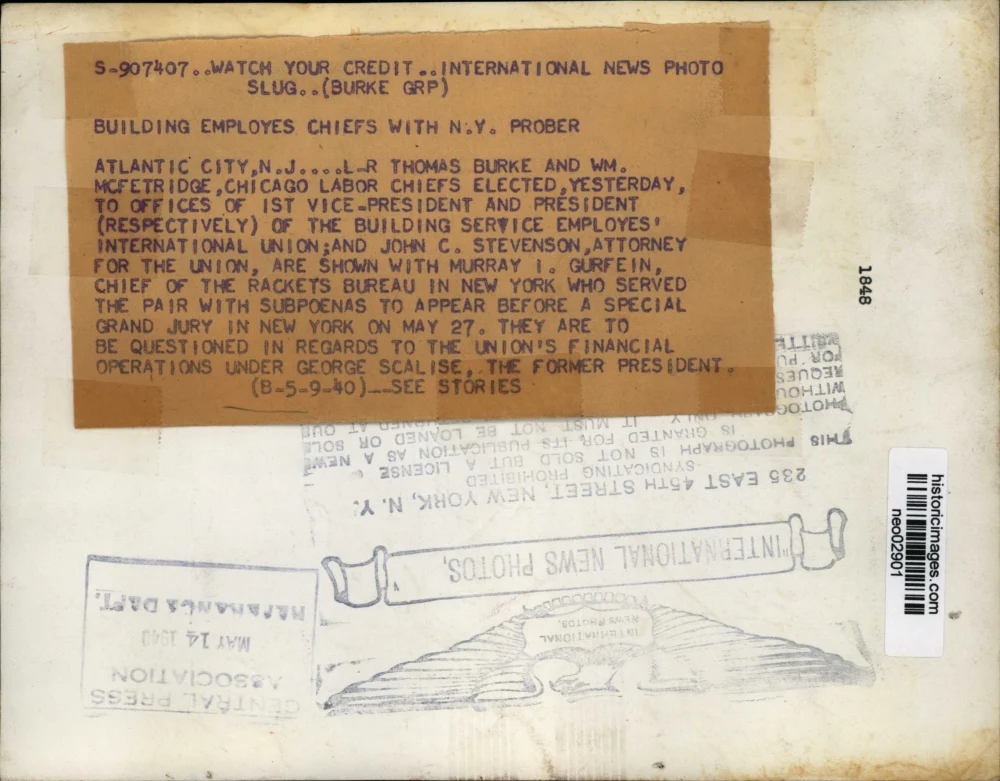 S-907407..WATCH YOUR CREDIT..INTERNATIONAL NEWS PHOTO
SLUG..(BURKE GRP)
BUILDING EMPLOYES CHIEFS WITH N.Y. PROBER
ATLANTIC CITY,N.J....L-R THOMAS BURKE AND WM.
MCFETRIDGE,CHICAGO LABOR CHIEFS ELECTED,YESTERDAY,
TO OFFICES OF 1ST VICE-PRESIDENT AND PRESIDENT
(RESPECTIVELY) OF THE BUILDING SERVICE EMPLOYES'
INTERNATIONAL UNION;AND JOHN C. STEVENSON,ATTORNEY
FOR THE UNION, ARE SHOWN WITH MURRAY I. GURFEIN,
CHIEF OF THE RACKETS BUREAU IN NEW YORK WHO SERVED
THE PAIR WITH SUBPOENAS TO APPEAR BEFORE A SPECIAL
GRAND JURY IN NEW YORK ON MAY 27. THEY ARE TO
BE QUESTIONED IN REGARDS TO THE UNION'S FINANCIAL
OPERATIONS UNDER GEORGE SCALISE, THE FORMER PRESIDENT.
(B-5-9-40)__SEE STORIES
1848
historicimages.com
neo02901
INTERNATIONAL
NEWS PHOTOS.
"INTERNATIONAL NEWS PHOTOS,
235 EAST 45TH STREET, NEW YORK, N. Y.
SYNDICATING PROHIBITED
THIS PHOTOGRAPH IS NOT SOLD BUT A LICENSE
IS GRANTED FOR ITS PUBLICATION AS A NEWS
PHOTOGRAPH ONLY. IT MUST NOT BE LOANED OR SOLD
WITHOU
REQUES
FOR PU
CENTRAL PRESS
ASSOCIATION
MAY 14 1940
REFERENCE DEPT.